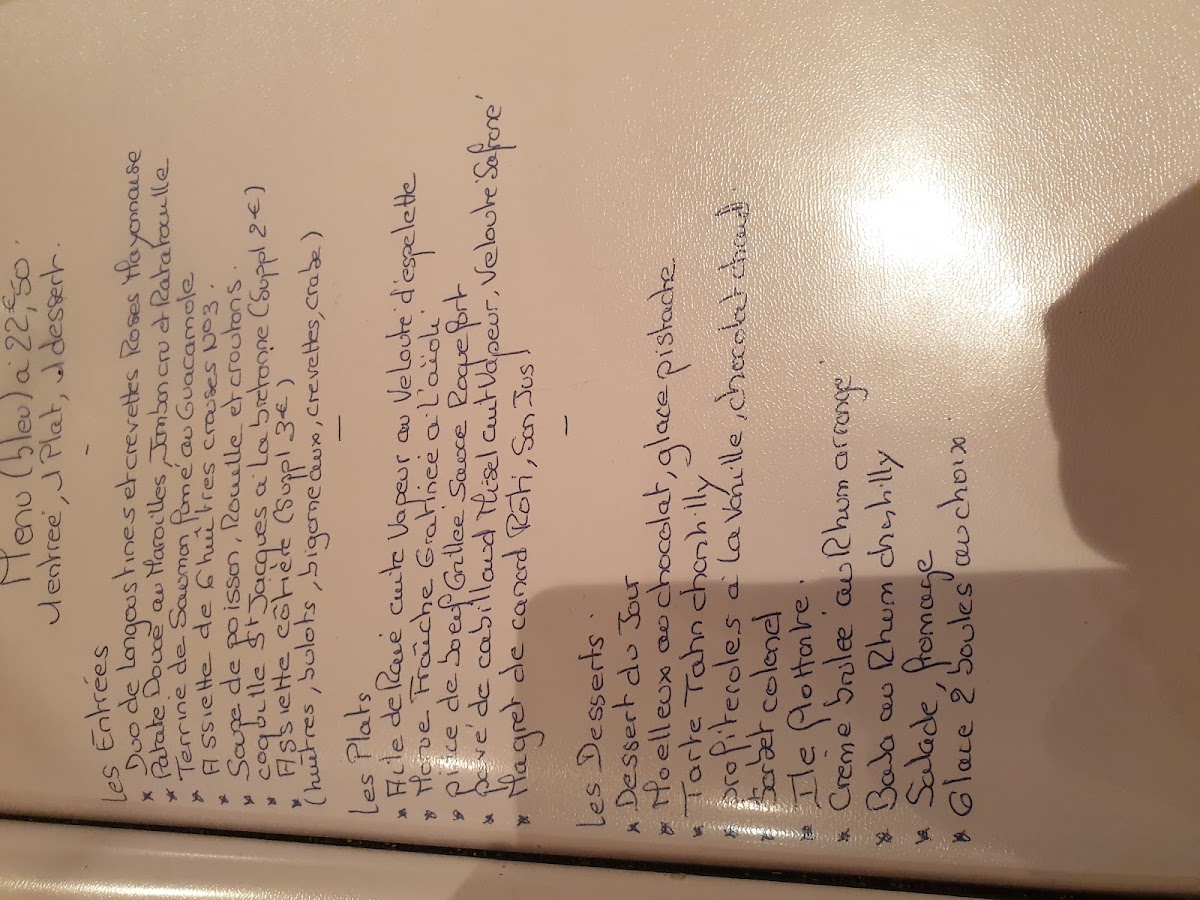 Menu (bleu) à 22,€50.
1 entrée, 1 Plat, 1 dessert.
-
Les Entrées
* Duo de langoustines et crevettes Roses Mayonnaise
* Patate Douce au Maroilles, Jambon cru et Ratatouille
* Terrine de Saumon Pané au Guacamole
* Assiette de 6 huîtres creuses N°3.
* Soupe de poisson, Rouille et croutons.
* coquille St Jacques à la bretonne (Suppl 2€)
* Assiette côtière (Suppl 3€)
(huîtres, bulots, bigorneaux, crevettes, crabe)
-
Les Plats
* Aile de Raie cuite Vapeur au Velouté d'espelette
* Morue Fraîche Gratinée à L'aïoli.
* Pièce de boeuf Grillée Sauce Roquefort
* Pavé de cabillaud Miel cuit Vapeur, Velouté Safrané
* Magret de canard Rôti, Son Jus
-
Les Desserts.
* Dessert du Jour
* Moelleux au chocolat, glace pistache
* Tarte Tatin chantilly
* profiteroles à La Vanille, chocolat chaud.
* Sorbet colonel
* Ile flottante.
* Crème brulée au Rhum arrangé
* Baba au Rhum chantilly
* Salade, fromage
* Glace 2 boules au choix.